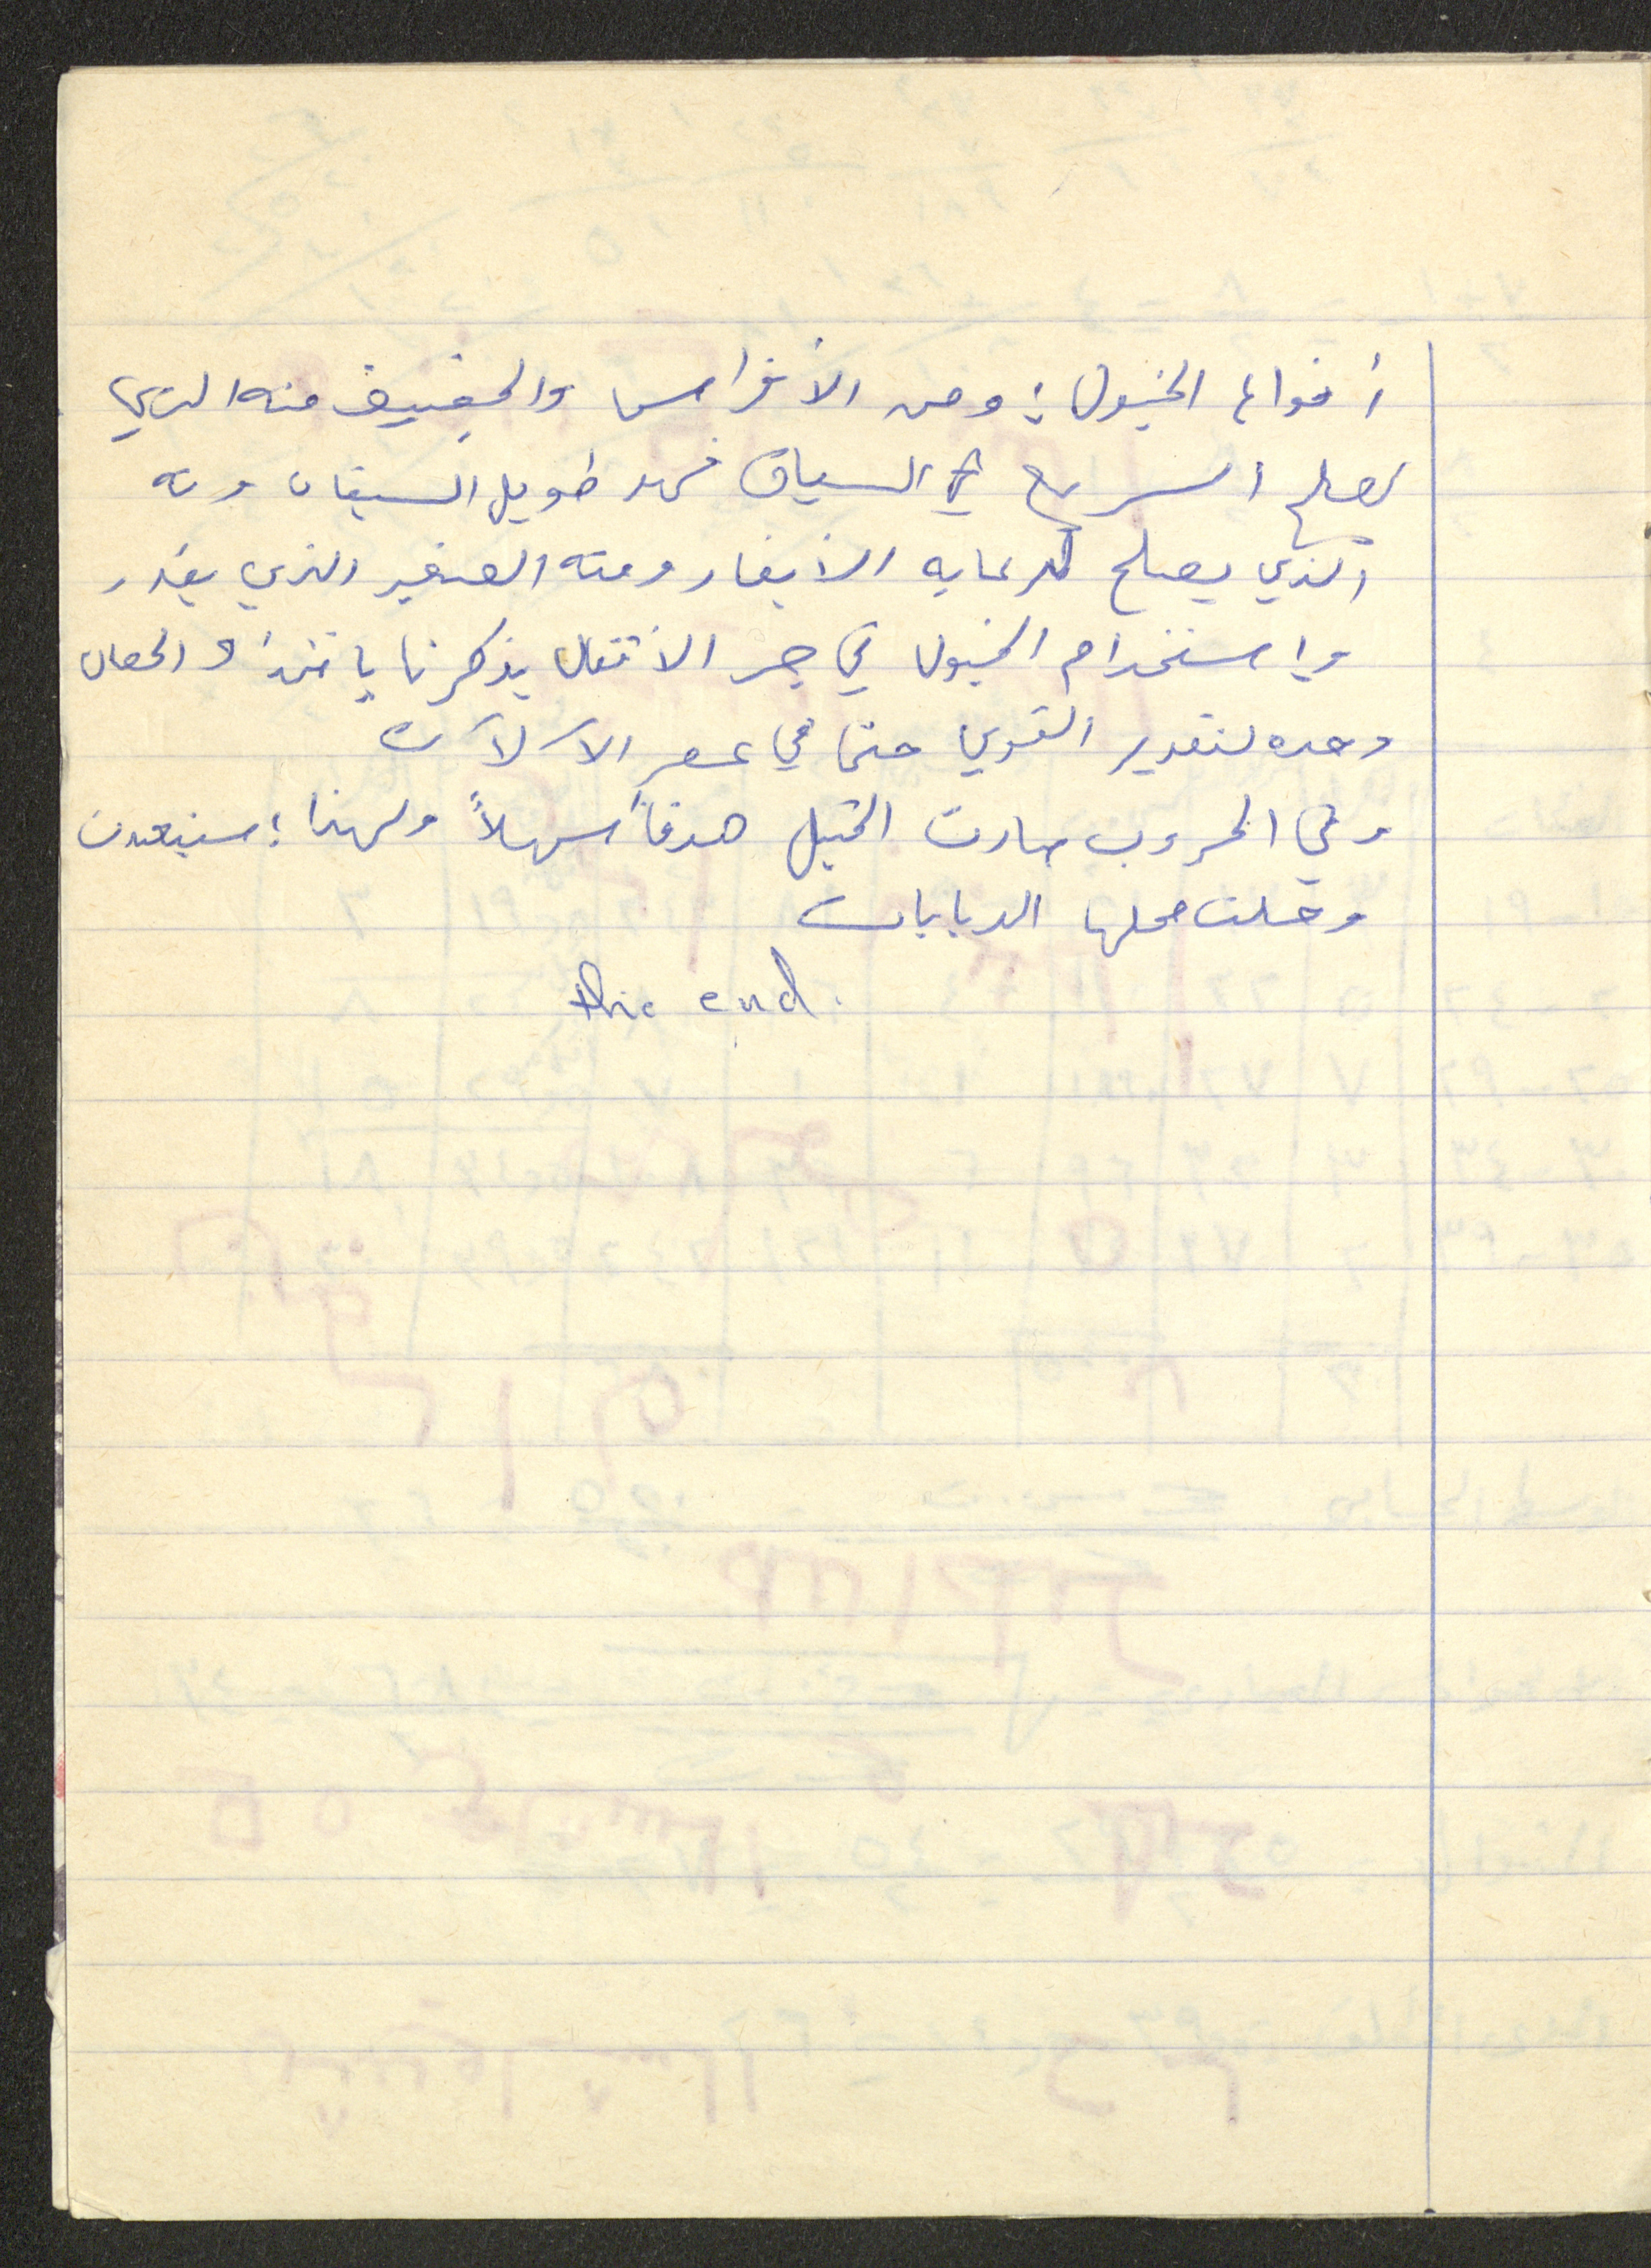 أنواع الخيول: ومن الأفراس والخفيف منه الذي
يصلح السريع في السباق فهو طويل السيقان ومنه
الذي يصلح لرعاية الأبقار ومنه الصغير الذي يقدر
وإستخدام الخيول في جر الأثقال يذكرنا والحصان
وحده لتقدير القوي حتى في عصر الآلات
وفي الحروب صارت الخيل هدفاً سهلاً ولهذا
وحلت محلها الدبابات
the end.